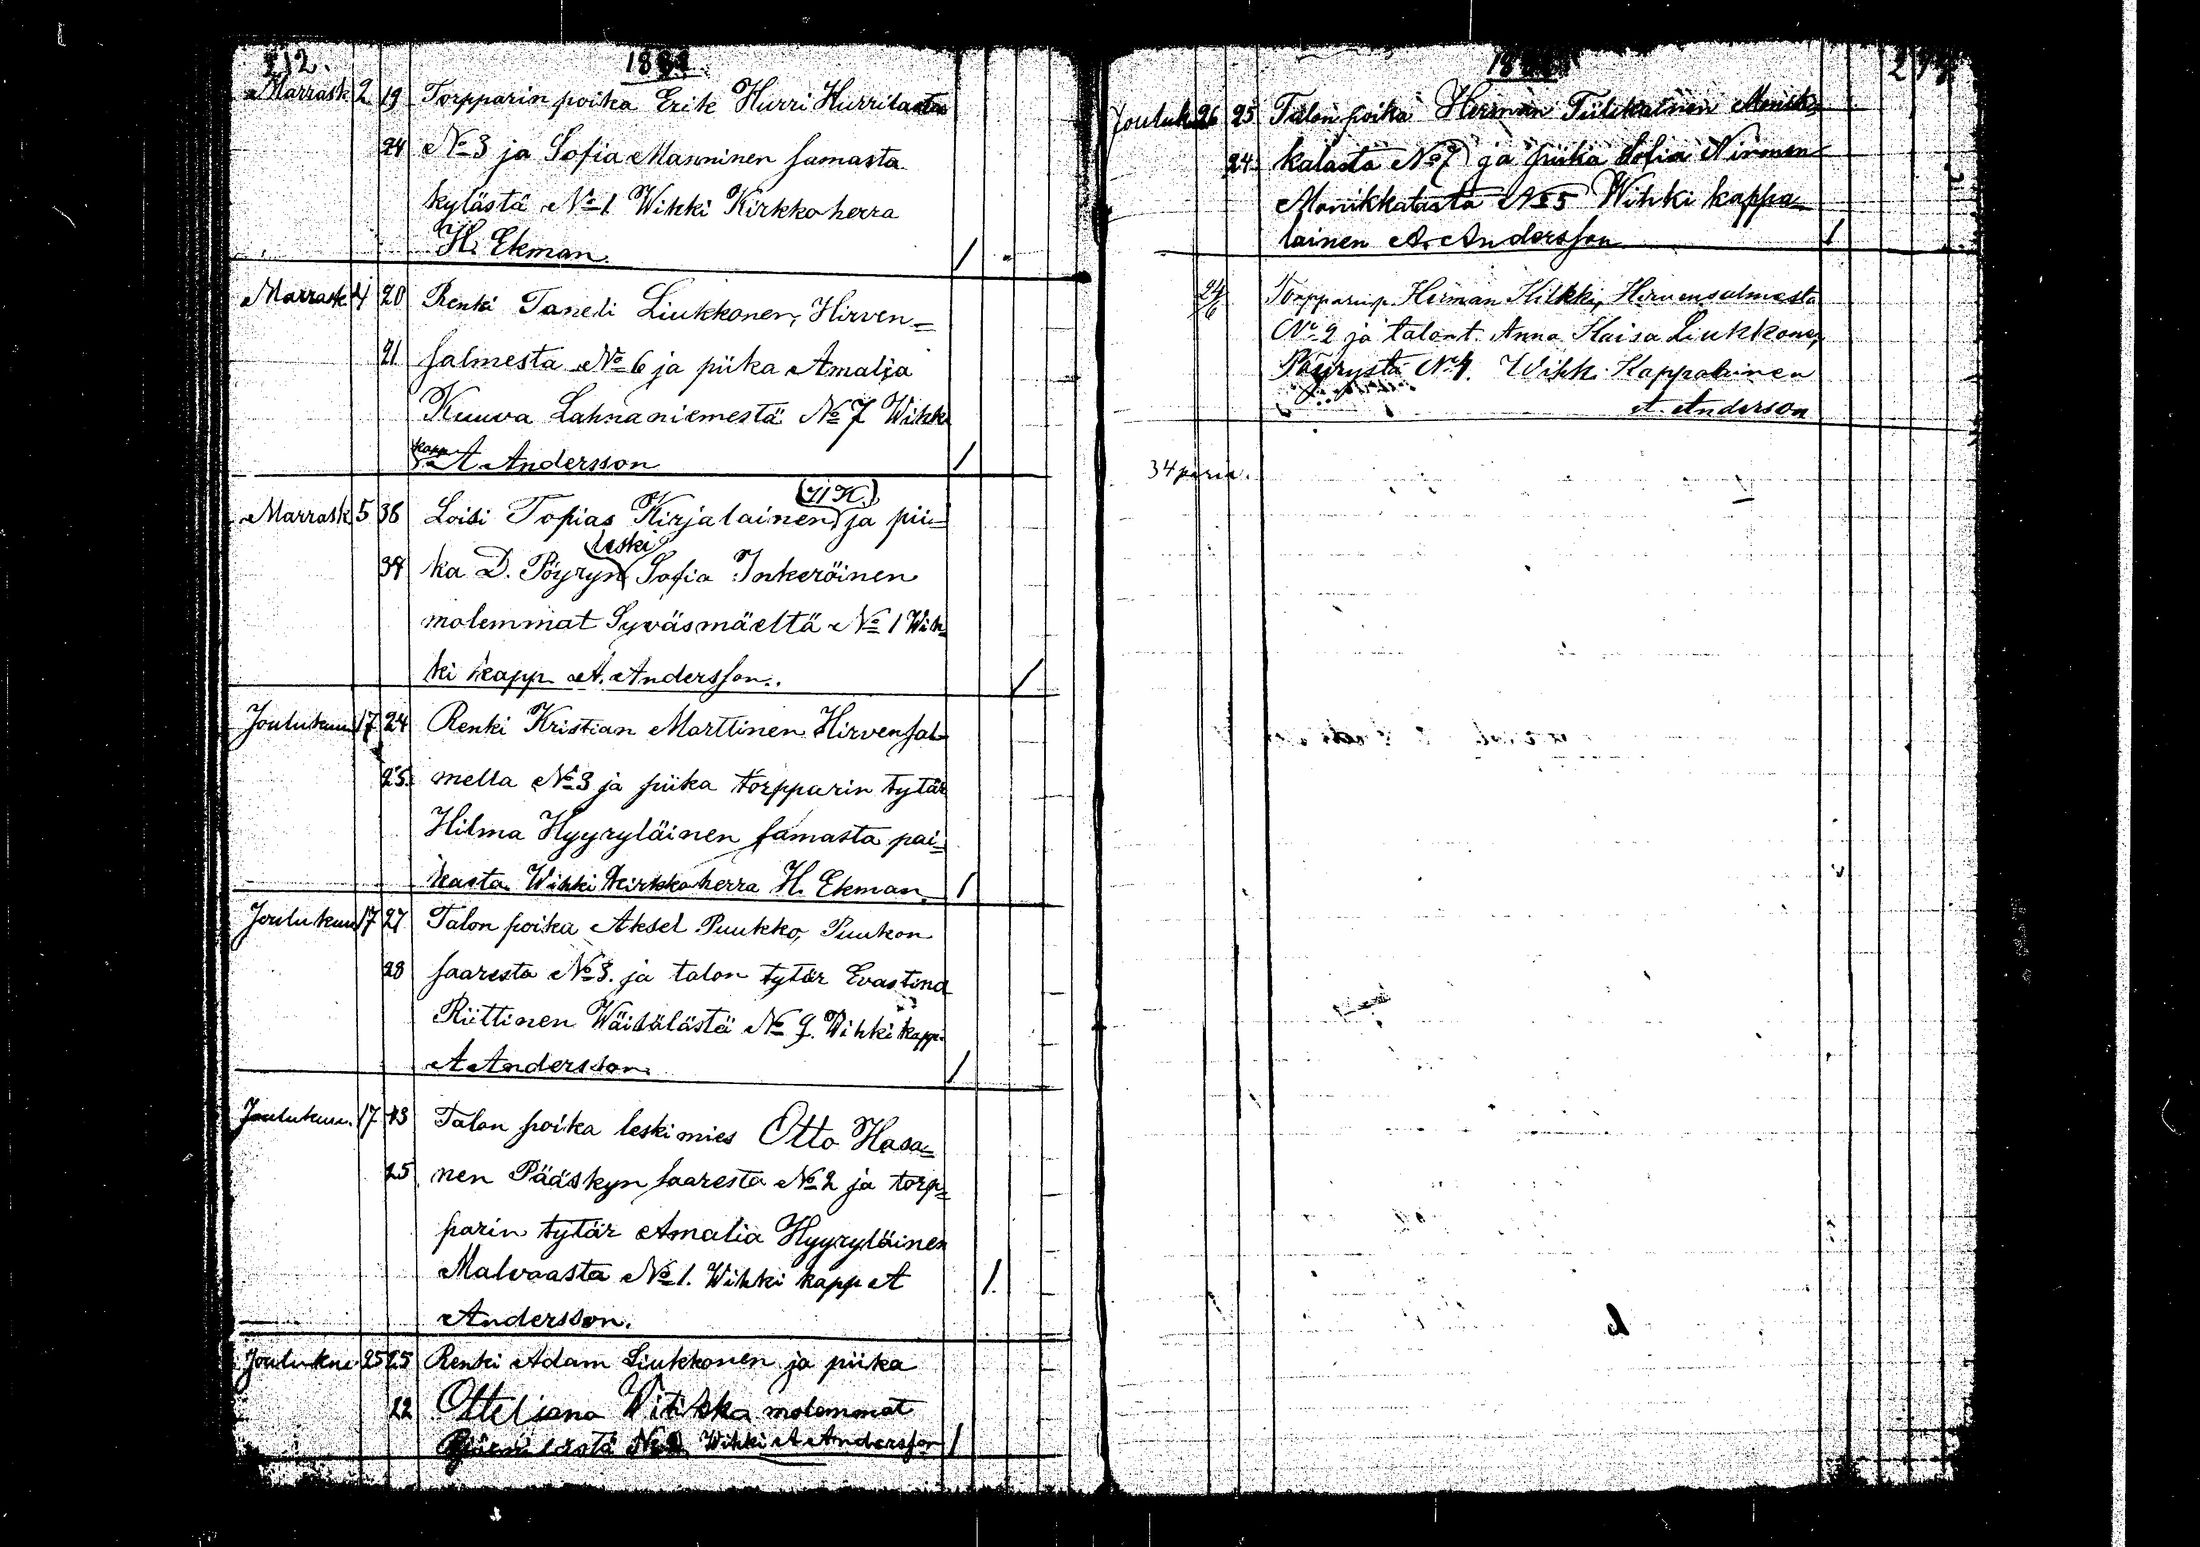 212.
Marrask 2 19 Torpparin poika Erik Hurri Hurrilasta
24 No 3 ja Sofia Manninen samasta
kylästä No 1 Wihki Kirkkoherra
H. Ekman. /
Marrask 4 20 Renki Taneli Liukkonen, Hirven=
21 salmesta No 6 ja piika Amalia
Kuuva Lahnaniemestä No 7 Wihki
kapp A Andersson /
Marrask 5 36 Loisi Topias Kirjalainen ja pii=
ka D. Pöyryn leski Sofia Inkeröinen
molemmat Syväsmäeltä No 1 Wih=
ki kapp A. Andersson. /
Joulukuu 17 24 Renki Kristian Marttinen Hirvensal
25. mella No 3 ja piika torpparin tytär
Hilma Hyyryläinen samasta pai=
kasta. Wihki Kirkkoherra H. Ekman. /
Joulukuu 17 27 Talon poika Aksel Puukko, Puukon
28 saaresta No 3. ja talon tytär Evastina
Riittinen Wäisälästä No 9. Wihki kapp.
A Andersson. /
Joulukuu. 17 43 Talon poika leskimies Otto Hasa=
25 nen Pääskynsaaresta No 2 ja torp=
parin tytär Amalia Hyyryläinen
Malvaasta No 1. Wihki kapp A /
Andersson.
Joulukuu 25 25 Renki Adam Liukkonen ja piika
22 Otteljana molemmat
Wihki A Andersson /
Jouluk 26 25 Talon poika Herman Tiilikainen
24 kalasta No 7 ja piika Sofia Ninonen
No 5 Wihki kappa=
lainen A. Andersson /
Herman Kilkki, Hirvensalmesta
No 2 ja talont. Anna Kaisa Liukkonen,
Pöyrystä No 4. Wihk. Kappalainen
A. Anderson
34 paria.